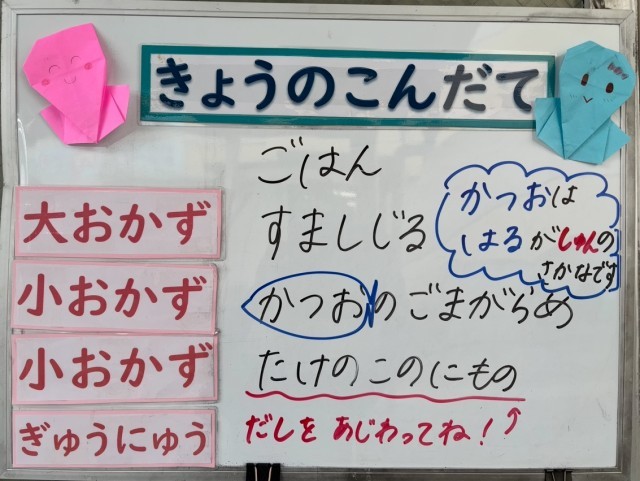 きょうのこんだて
ごはん
大おかず
すましじる
かつおは
はるがしゅんの
さかなです
小おかず
かつおのごまがらめ
小おかず
たけのこのにもの
ぎゅうにゅう
だしを あじわってね!